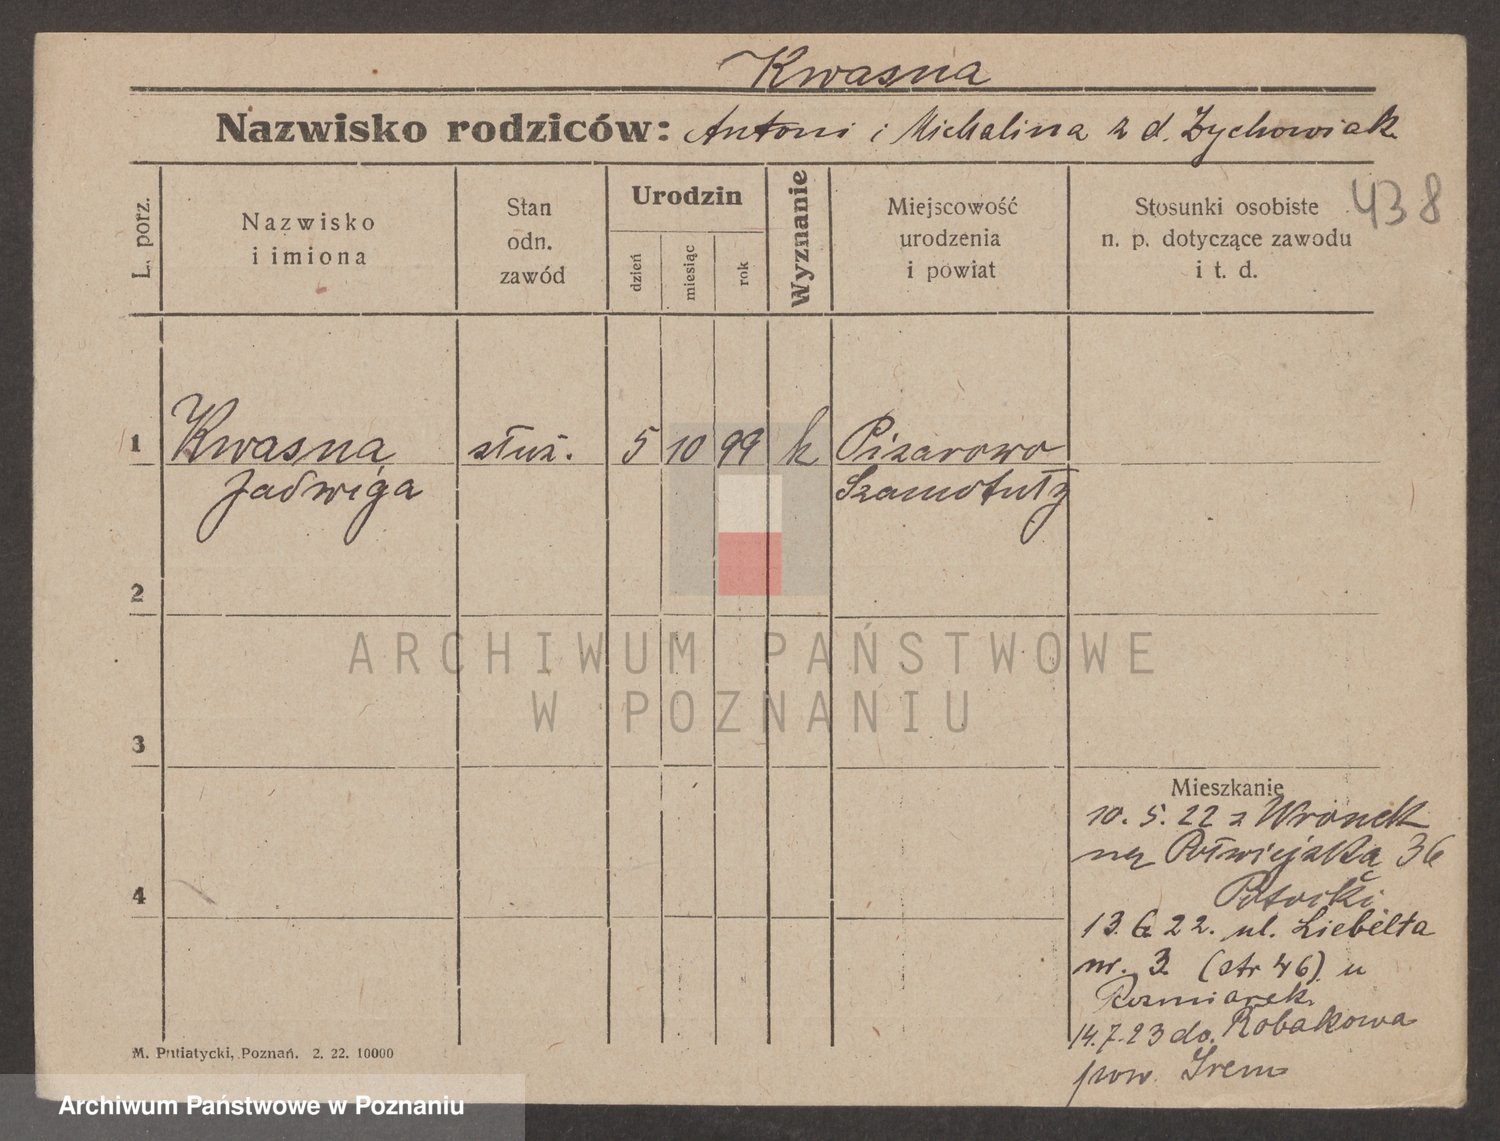 Kwasna
Nazwisko rodziców: Antoni i Michalina z d. Zychowiak
438
L. porz.
Nazwisko
i imiona
Stan
odn.
zawód
Urodzin
dzień
miesiąc
rok
Wyznanie
Miejscowość
urodzenia
i powiat
Stosunki osobiste
n. p. dotyczące zawodu
i t. d.
1 Kwasna służ. 5 10 99 k Pizarowo
Jadwiga Szamotuły
2
ARCHIWUM PAŃSTWOWE
W POZNANIU
3
Mieszkanie
10. 5. 22 z Wronek
na Półwiejską 36
Potocki
4
13. 6. 22. ul. Liebelta
nr. 3 (str 46) u
14.7.23 do Robakowa
pow. Śrem
M. Putiatycki, Poznań. 2. 22. 10000
Archiwum Państwowe w Poznaniu